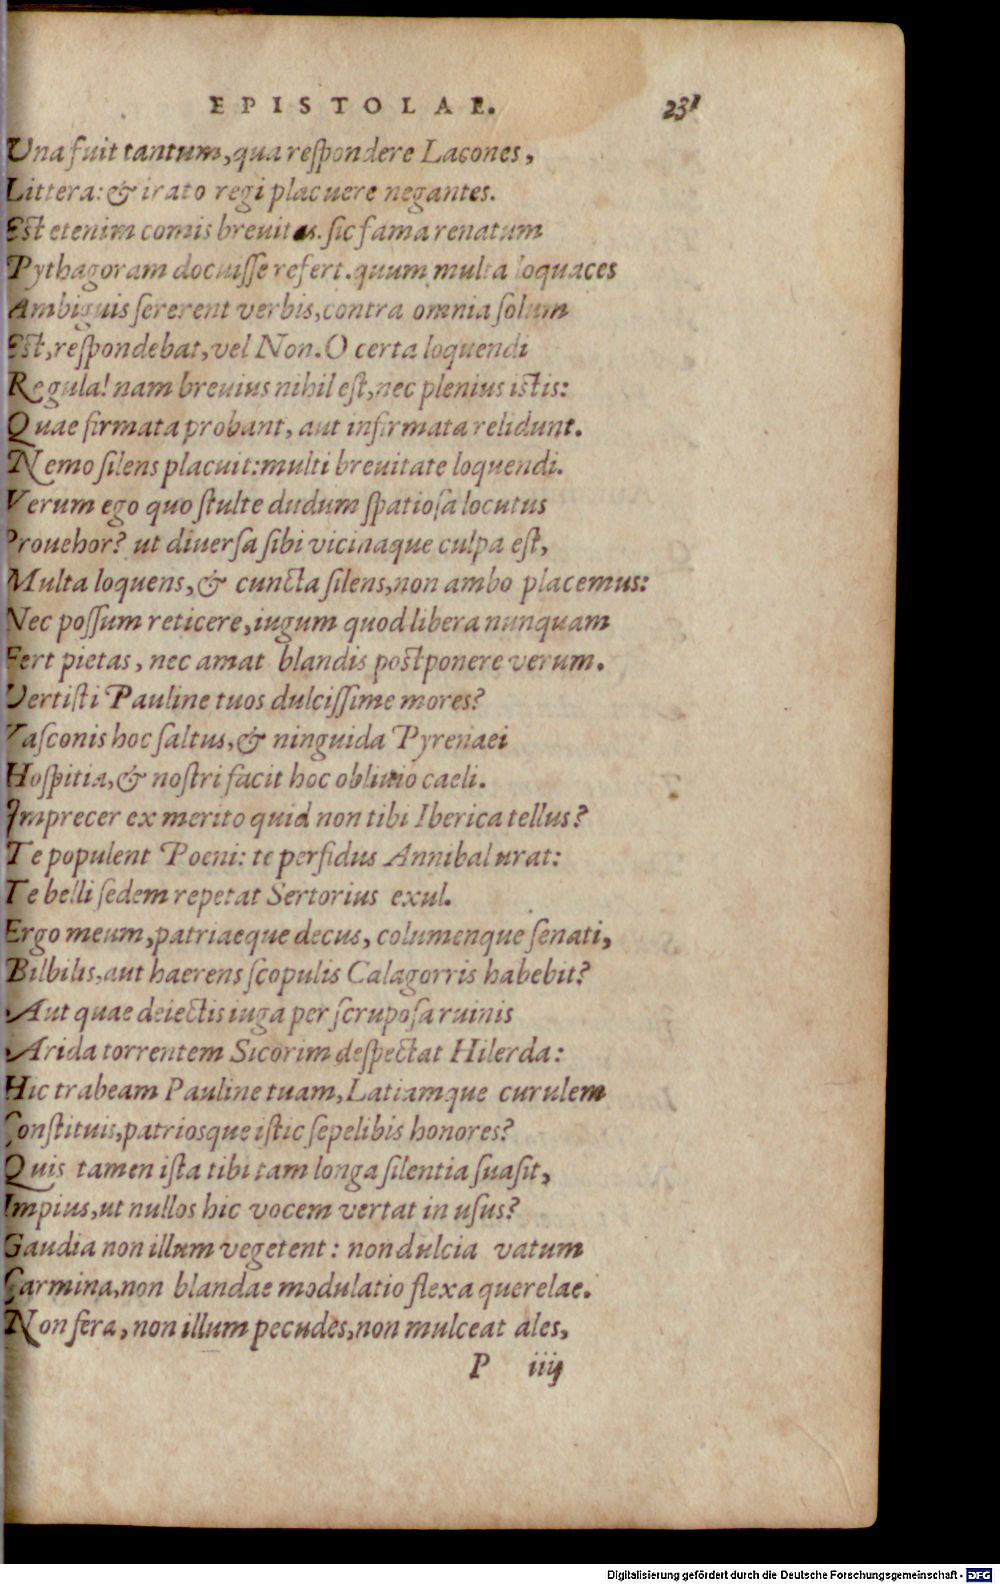 EPISTOLAE. 231
Una fuit tantum, qua reſpondere Lacones,
Littera: & irato regi placuere negantes.
Eſt etenim comis breuitas. ſic fama renatum
Pythagoram docuiſſe refert. quum multa loquaces
Ambiguis ſererent verbis, contra omnia ſolum
Eſt, reſpondebat, vel Non. O certa loquendi
Regula! nam breuius nihil eſt, nec plenius iſtis:
Quae firmata probant, aut infirmata relidunt.
Nemo ſilens placuit: multi breuitate loquendi.
Verum ego quo ſtulte dudum ſpatioſa locutus
Prouehor? ut diuerſa ſibi vicinaque culpa eſt,
Multa loquens, & cuncta ſilens, non ambo placemus:
Nec poſſum reticere, iugum quod libera nunquam
Fert pietas, nec amat blandis poſtponere verum.
Vertiſti Pauline tuos dulciſſime mores?
Vaſconis hoc ſaltus, & ninguida Pyrenaei
Hoſpitia, & noſtri facit hoc obliuio caeli.
Imprecer ex merito quid non tibi Iberica tellus?
Te populent Poeni: te perfidus Annibal urat:
Te belli ſedem repetat Sertorius exul.
Ergo meum, patriaeque decus, columenque ſenati,
Bilbilis, aut haerens ſcopulis Calagorris habebit?
Aut quae deiectis iuga per ſcrupoſa ruinis
Arida torrentem Sicorim deſpectat Hilerda:
Hic trabeam Pauline tuam, Latiamque curulem
Conſtituis, patriosque iſtic ſepelibis honores?
Quis tamen iſta tibi tam longa ſilentia ſuaſit,
Impius, ut nullos hic vocem vertat in uſus?
Gaudia non illum vegetent: non dulcia vatum
Carmina, non blandae modulatio flexa querelae.
Non fera, non illum pecudes, non mulceat ales,
P iiij
Digitalisierung gefördert durch die Deutsche Forschungsgemeinschaft - DFG